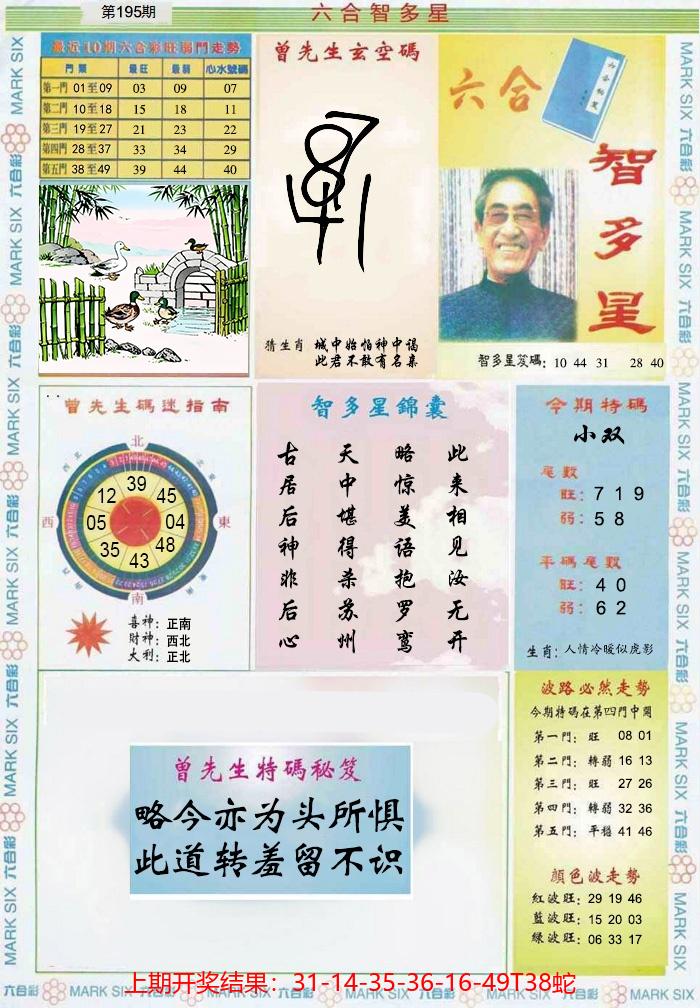 第195期
六合智多星
最近10期六合彩旺弱門走勢
門票 最旺 最弱 心水號碼
第一門 01至09 03 09 07
第二門 10至18 15 18 11
第三門 19至27 21 23 22
第四門 28至37 33 34 29
第五門 38至49 39 44 40
曾先生玄空碼
猜生肖 城中始怕神中谒
此君不敢有名亲
六合
六合秘笈
智多星
智多星笈碼: 10 44 31 28 40
曾先生碼迷指南
北
西北
東北
西
東
南
39
12 45
05 04
35 48
43
喜神: 正南
財神: 西北
大利: 正北
智多星錦囊
古 天 略 此
居 中 惊 来
后 堪 美 相
神 得 语 见
非 杀 抱 汝
后 苏 罗 无
心 州 鸾 开
今期特碼
小双
尾數
旺: 7 1 9
弱: 5 8
平碼尾數
旺: 4 0
弱: 6 2
生肖: 人情冷暖似虎影
曾先生特碼秘笈
略今亦为头所惧
此道转羞留不识
波路必然走勢
今期特碼在第四門中開
第一門: 旺 08 01
第二門: 轉弱 16 13
第三門: 旺 27 26
第四門: 轉弱 32 36
第五門: 平穩 41 46
顏色波走勢
紅波旺: 29 19 46
藍波旺: 15 20 03
綠波旺: 06 33 17
上期开奖结果：31-14-35-36-16-49T38蛇
MARK SIX 六合彩